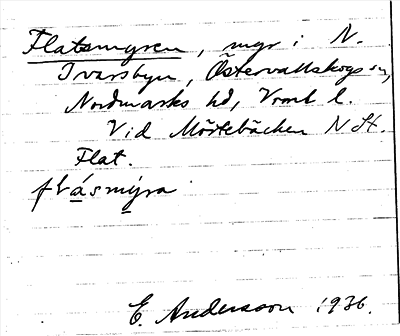 Flatsmyren, myr i N.
Ivarsbyn, Östervallskogs sn,
Nordmarks hd, Vrml l.
Vid Mörtebäcken NH.
Flat.
flásmýra
E. Andersson 1936.